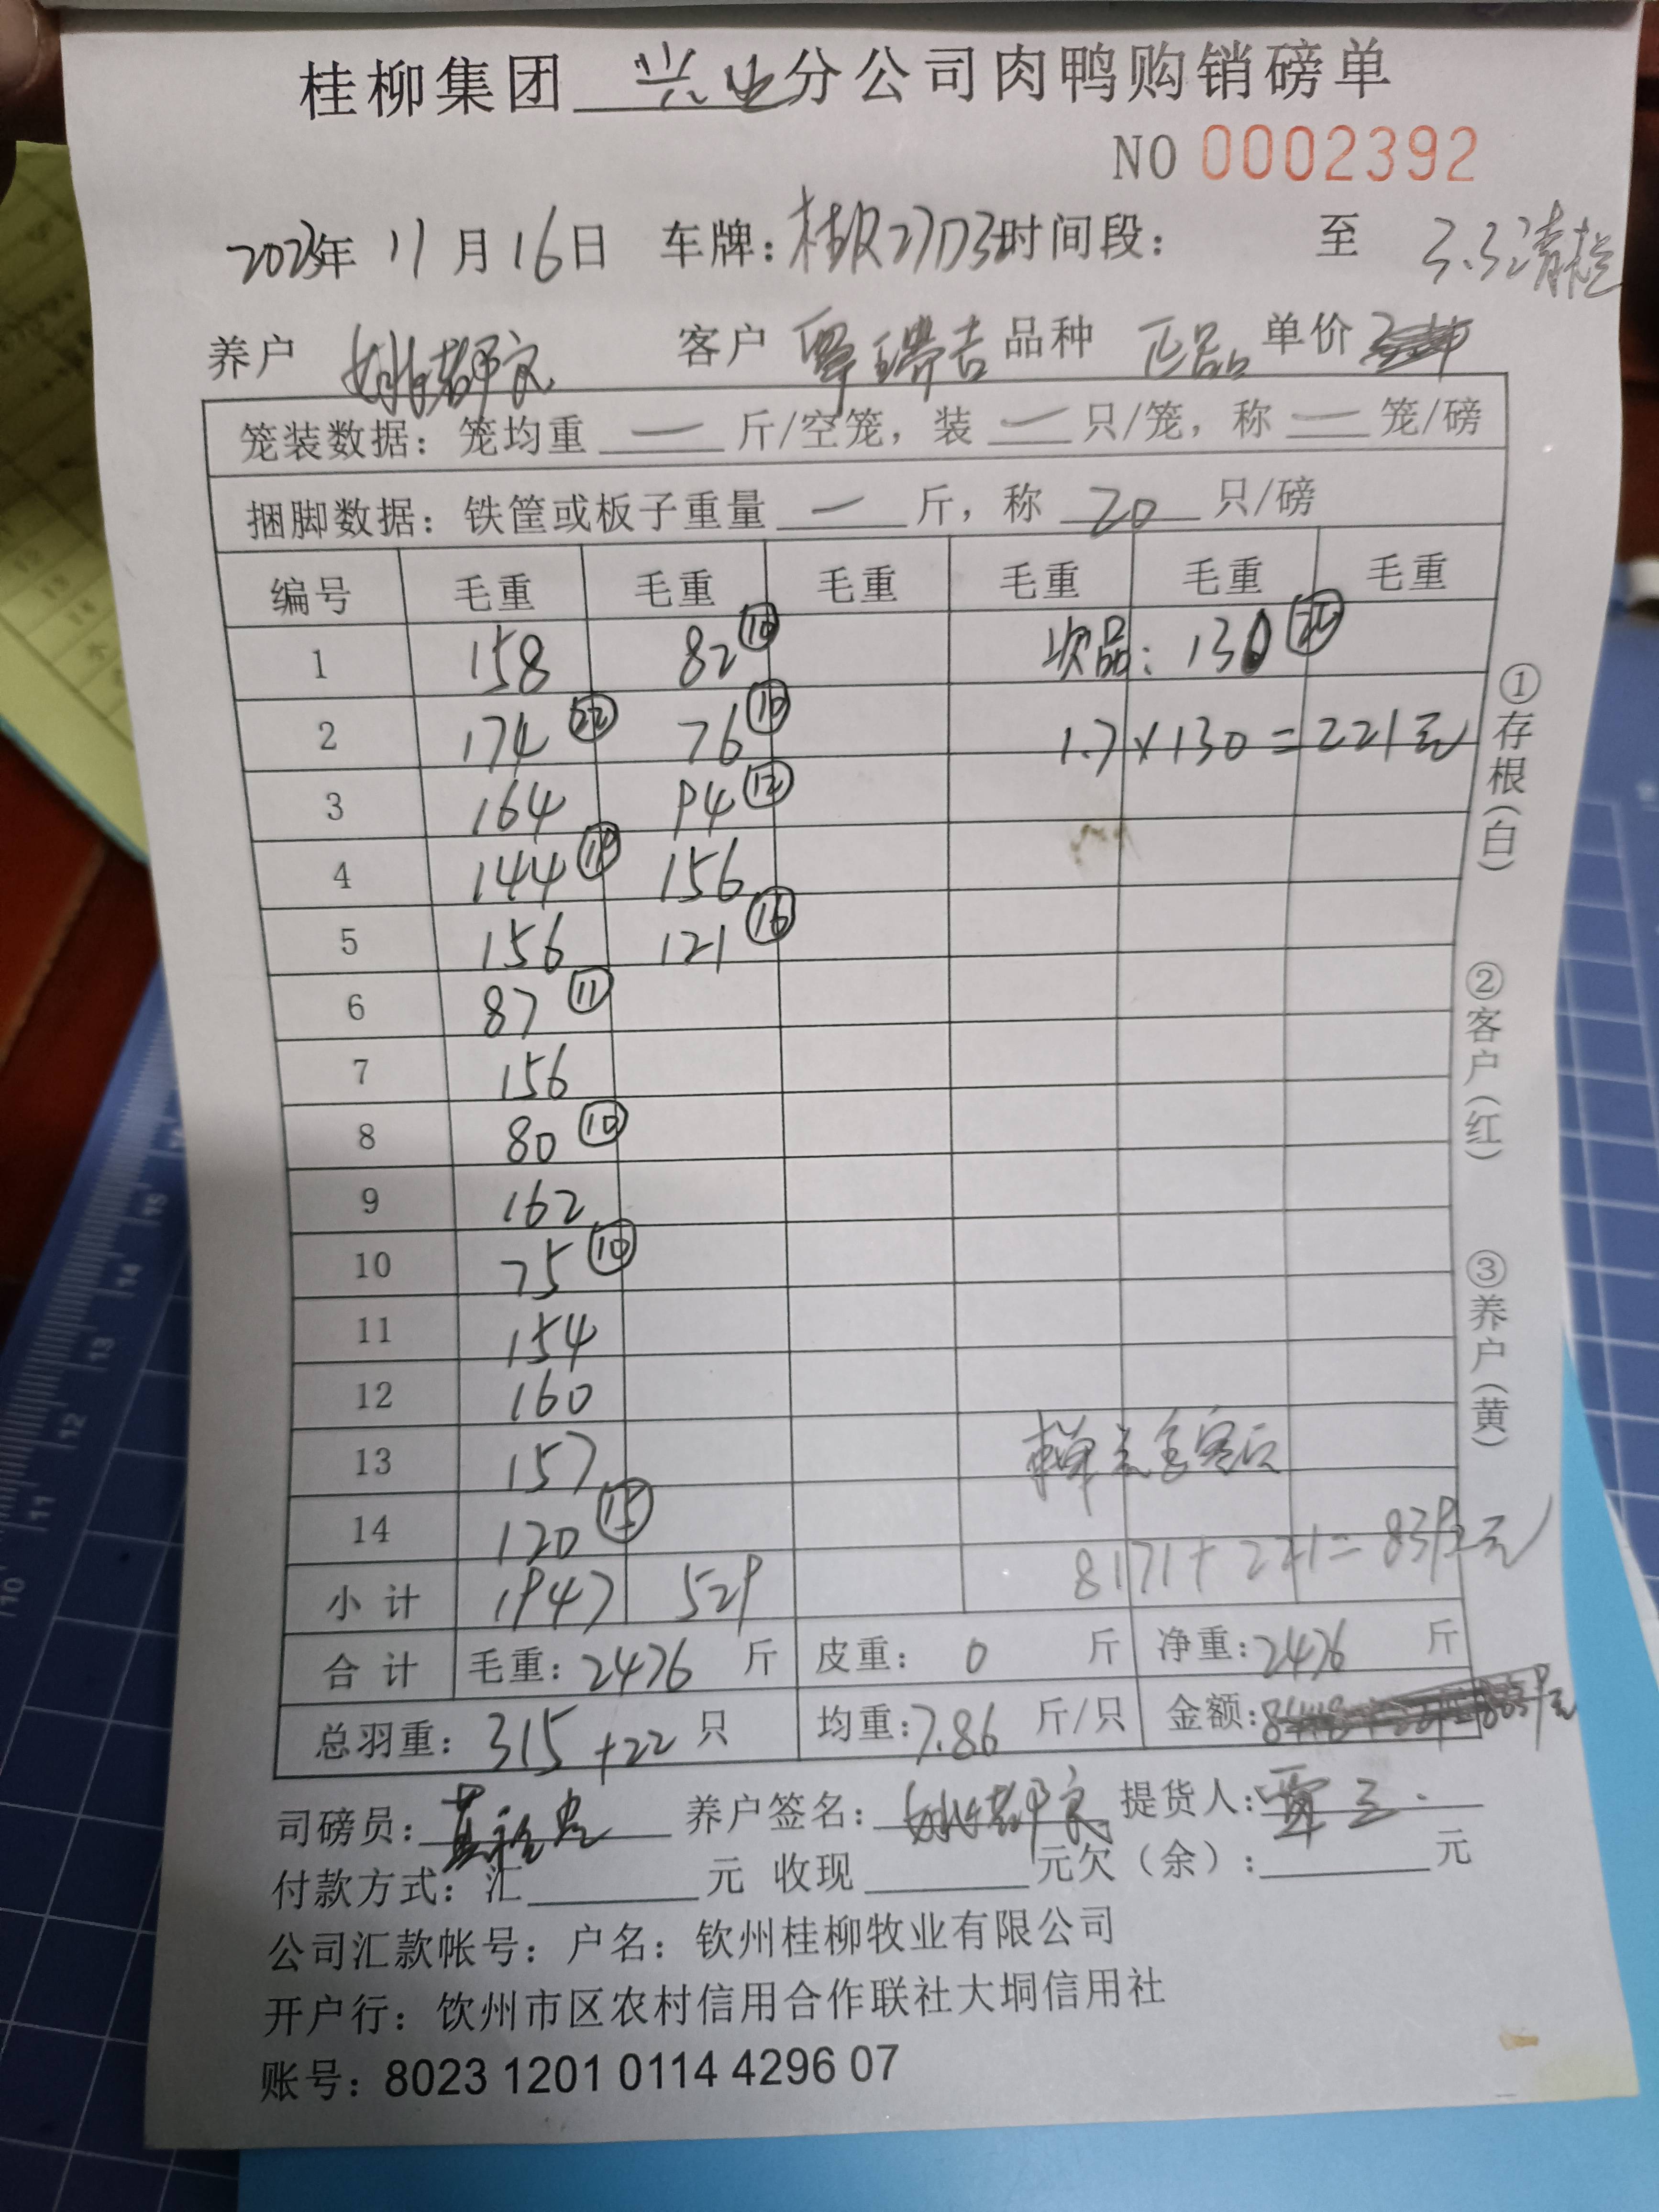 桂柳集团 兴业 分公司肉鸭购销磅单
NO 0002392
2023年 11月16日 车牌: 时间段: 至 3.3清栏
养户 客户 覃瑞吉 品种 正品 单价
笼装数据: 笼均重 一 斤/空笼, 装 一 只/笼, 称 一 笼/磅
捆脚数据: 铁筐或板子重量 一 斤, 称 20 只/磅
编号 毛重 毛重 毛重 毛重 毛重 毛重
1 158 82 ⑩ 次品: 130
2 174 ㉒ 76 ⑩ 1.7×130=221元
3 164 94 ⑫
4 144 156
5 156 121 ⑯
6 87 ⑪
7 156
8 80 ⑩
9 162
10 75 ⑩
11 154
12 160
13 157
14 120 ⑮
8171+221=8392元
小计 1947 529
合计 毛重: 2476 斤 皮重: 0 斤 净重: 2476 斤
总羽重: 315+22 只 均重: 7.86 斤/只 金额:
司磅员: 养户签名: 提货人:
付款方式: 汇 元 收现 元欠(余): 元
公司汇款帐号: 户名: 钦州桂柳牧业有限公司
开户行: 饮州市区农村信用合作联社大垌信用社
账号: 8023 1201 0114 4296 07
①存根(白)
②客户(红)
③养户(黄)
15
14
13
12
11
10